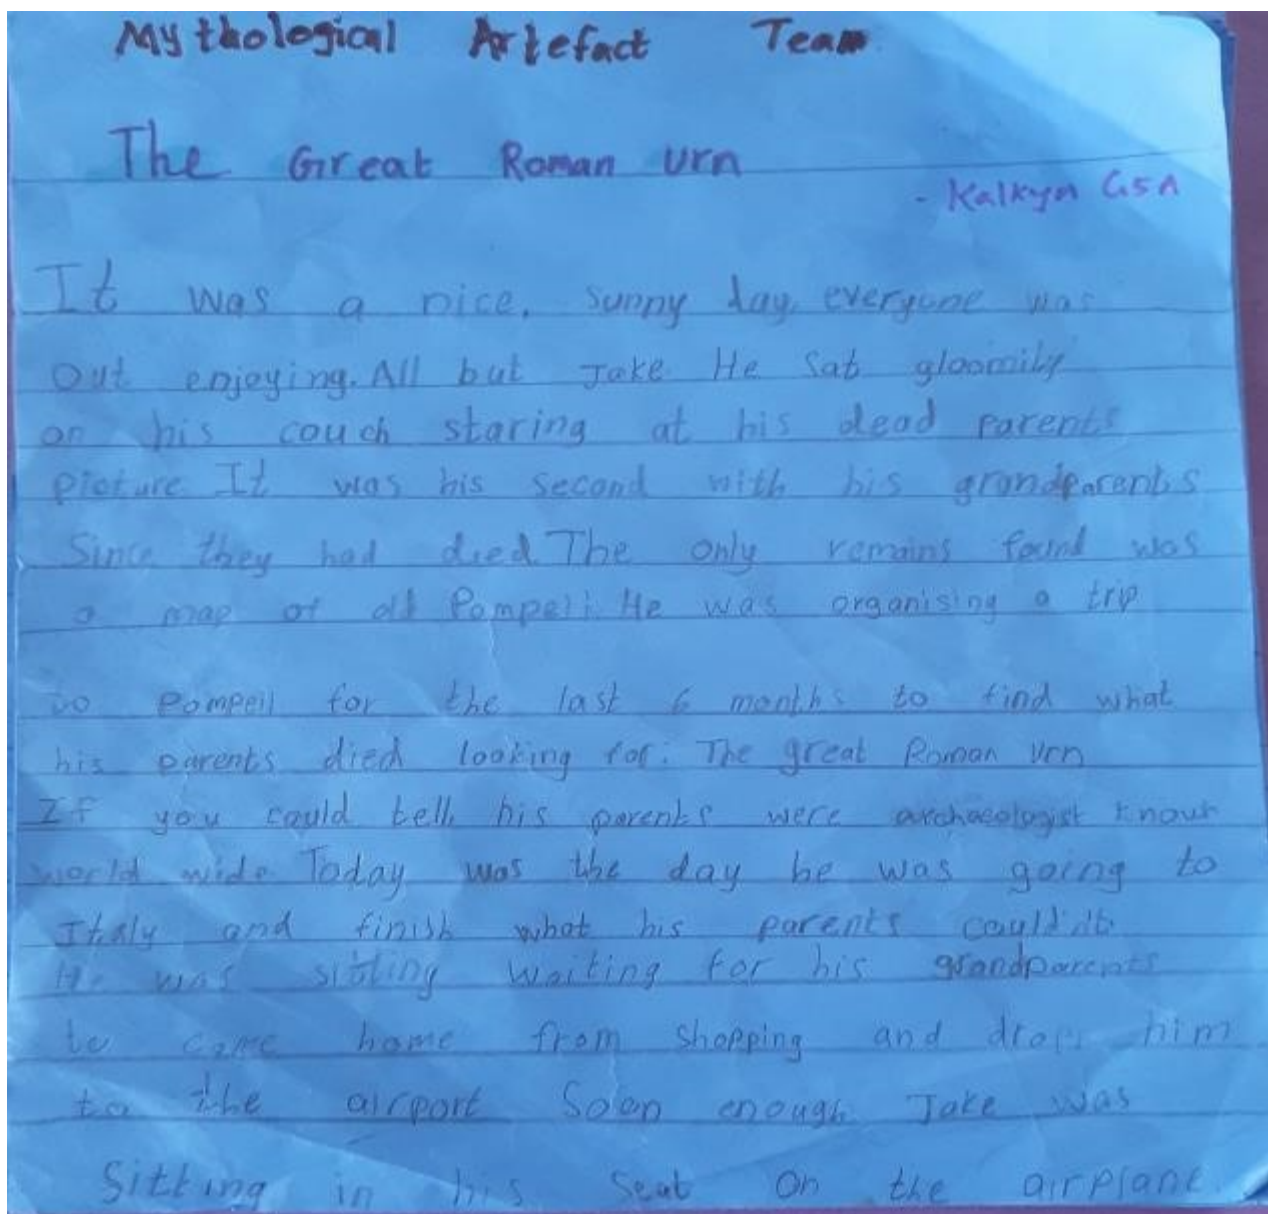 Mythological Artefact Team
The Great Roman Urn
- Kalkyn G5A
It was a nice, sunny day, everyone was
out enjoying. All but Jake He sat gloomily
on his couch staring at his dead parents
picture It was his second with his grandparents
Since they had died The only remains found was
a map of old Pompeii. He was organising a trip
to Pompeii for the last 6 months to find what
his parents died looking for. The great Roman Urn
If you could tell, his parents were archaeologist known
world wide Today was the day he was going to
Italy and finish what his parents could'nt
He was sitting waiting for his grandparents
to come home from shopping and drop him
to the airport Soon enough Jake was
Sitting in his seat on the airplane